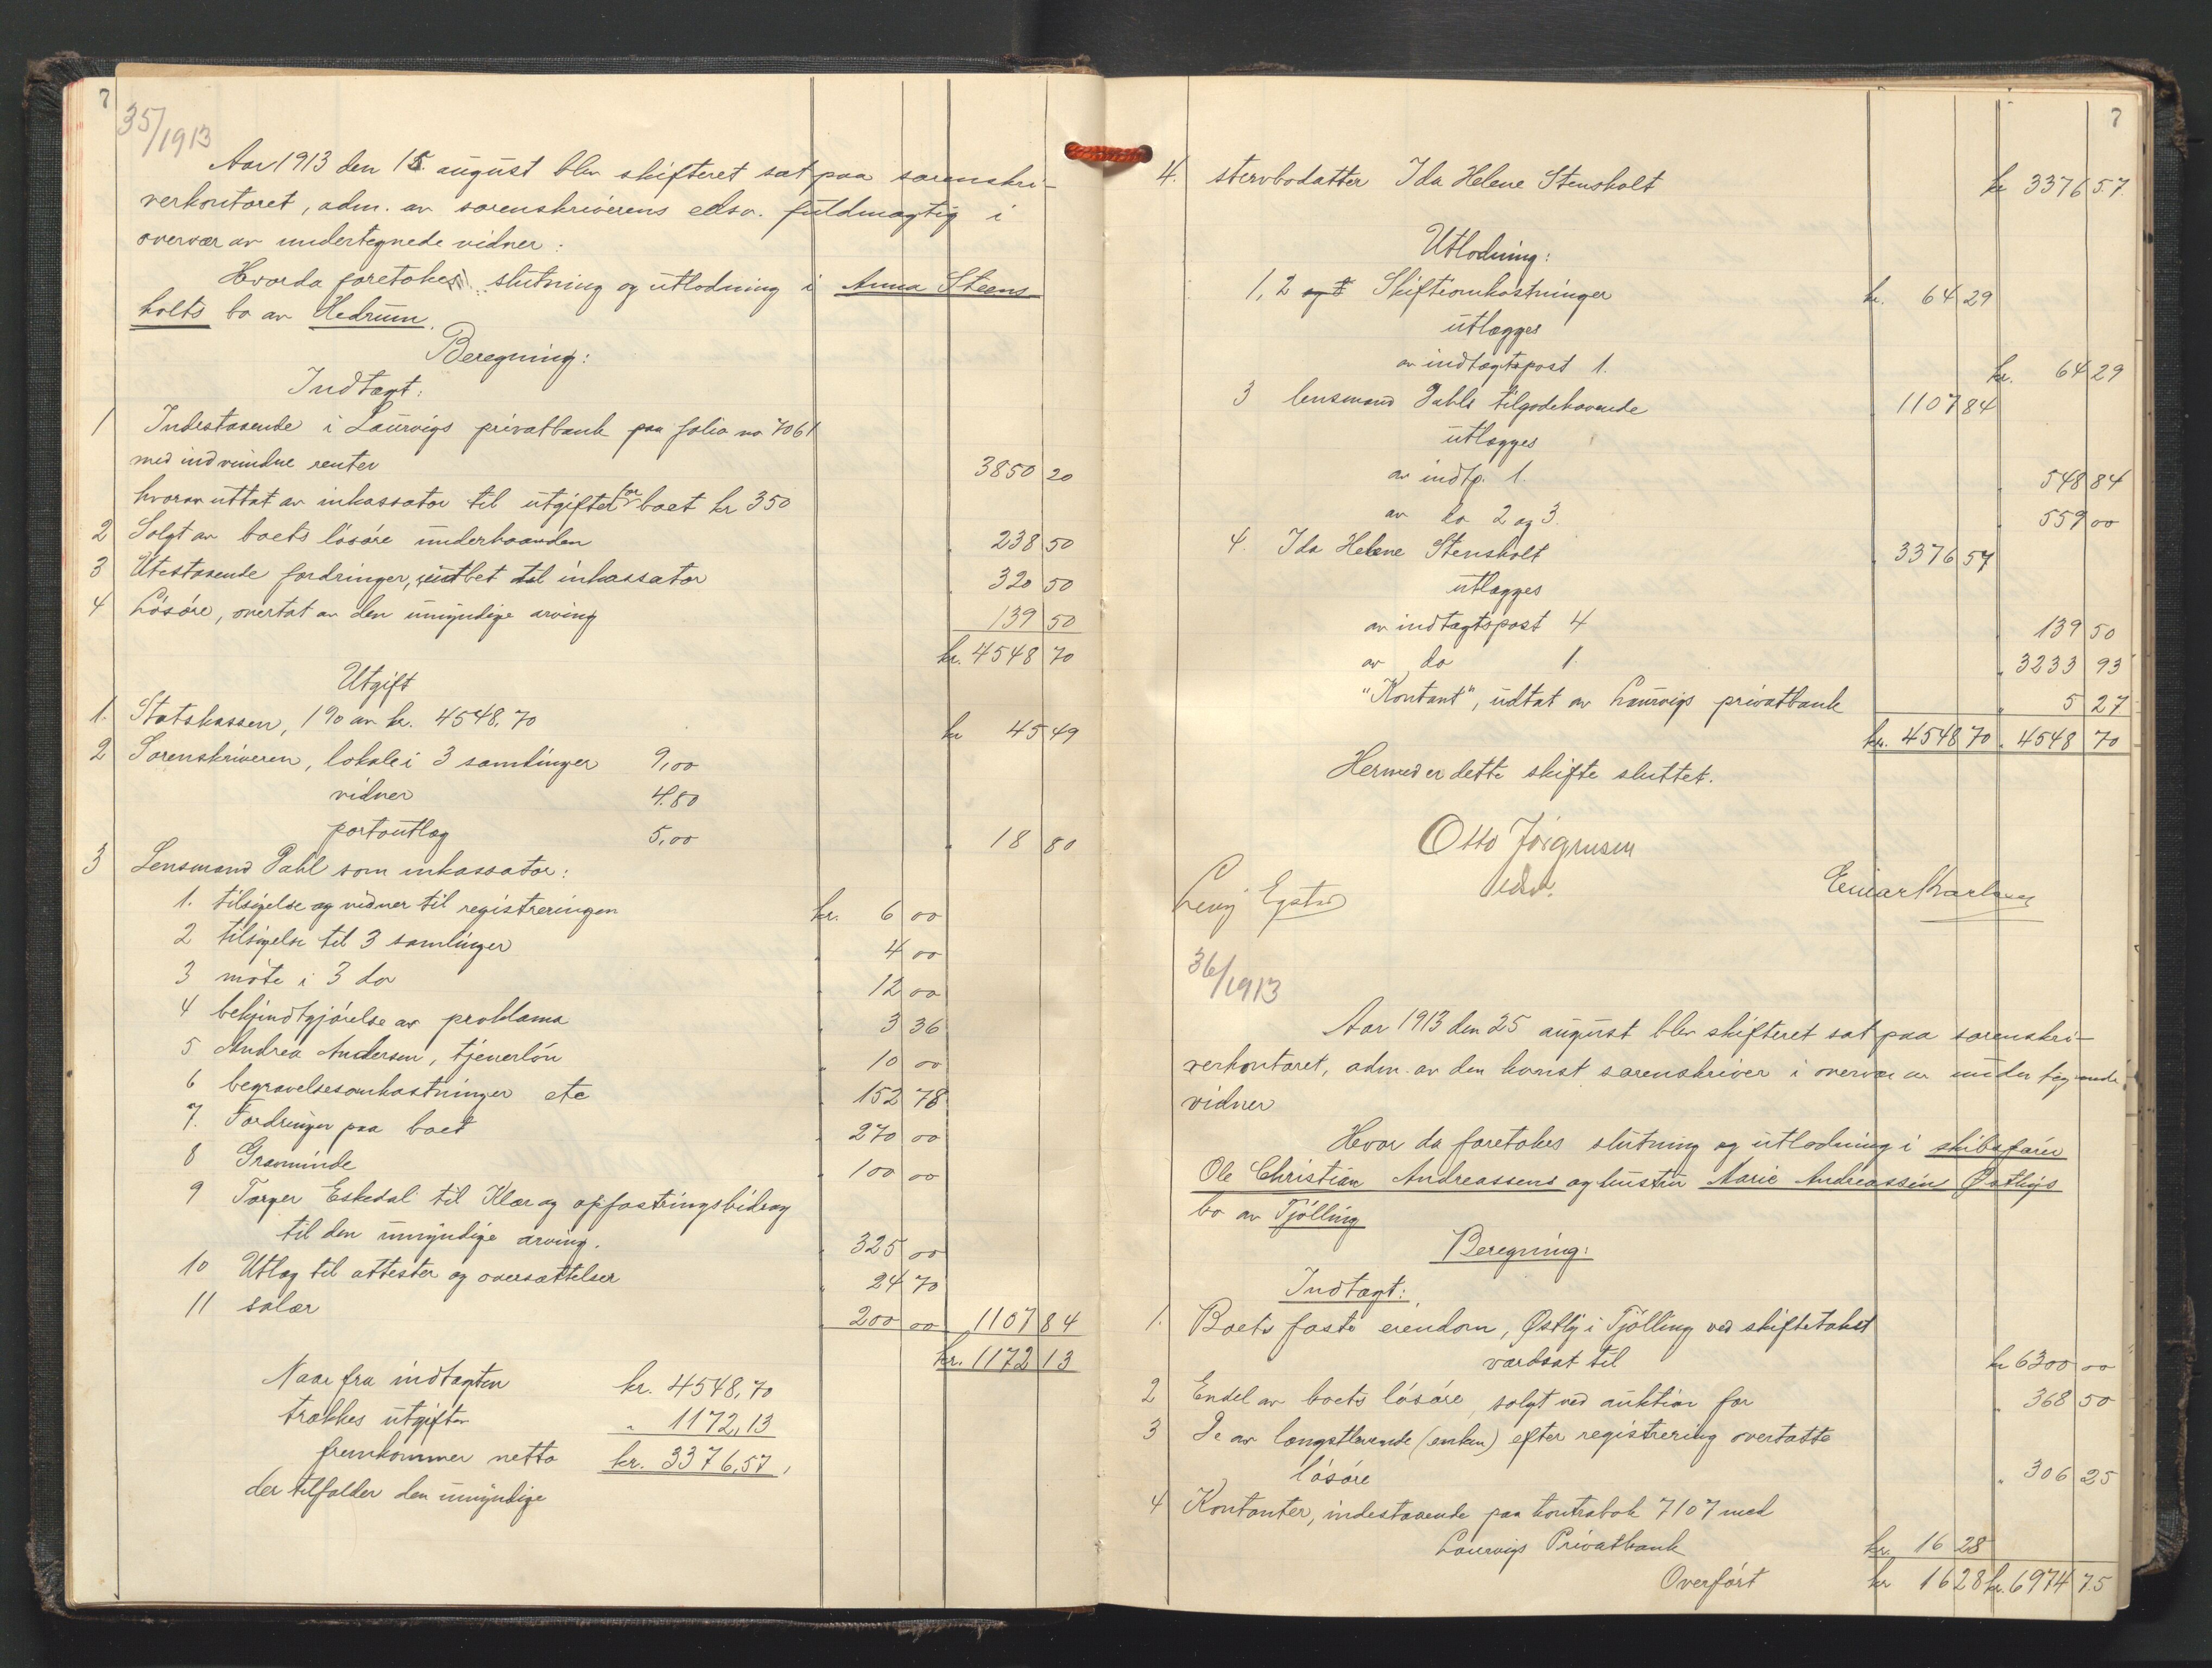 7
35/1913
Aar 1913 den 15. august blev skifteret sat paa sorenskri-
verkontoret, adm. av sorenskriverens edsv. fuldmægtig i
overvær av undertegnede vidner:
Hvorda foretokes slutning og utlodning i Anna Steens-
holts bo av Hedrum.
Beregning:
Indtægt:
1 Indestaaende i Laurvigs privatbank paa folio no 7061
med indvundne renter 3850 20
hvorav uttat av inkassator til utgifter for boet kr 350
2 Solgt av boets løsøre underhaanden " 238 50
3 Utestaaende fordringer, indbet til inkassator " 320 50
4 Løsøre, overtat av den umyndige arving " 139 50
kr. 4548 70
Utgift
1. Statskassen, 1% av kr. 4548,70 kr 45 49
2 Sorenskriveren, lokale i 3 samlinger 9,00
vidner 4.80
portoutlæg 5,00 " 18 80
3 Lensmand Dahl som inkassator:
1. tilsigelse og vidner til registreringen kr. 6 00
2 tilsigelse til 3 samlinger " 4 00
3 møte i 3 do " 12 00
4 bekjendtgjørelse av proklama " 3 36
5 Andrea Andersen, tjenerløn " 10 00
6 begravelsesomkostninger etc " 152 78
7. Fordringer paa boet " 270 00
8 Gravminde " 100 00
9 Torger Eskedal til Klær og opfostringsbidrag
til den umyndige arving. " 325 00
10 Utlæg til attester og oversættelser " 24 70
11 salær " 200 00 " 1107 84
kr. 1172 13
Naar fra indtægten kr. 4548,70
trækkes utgiften " 1172,13
fremkommer netto kr. 3376,57,
der tilfalder den umyndige
7
4. stervbodatter Ida Helene Stensholt kr 3376 57.
Utlodning:
1, 2 og 3 Skifteomkostninger kr. 64 29
utlægges
av indtægtspost 1. kr. 64 29
3 lensmand Dahls tilgodehavende " 1107 84
utlægges
av indtp. 1. " 548 84
av do 2 og 3. " 559 00
4. Ida Helene Stensholt " 3376 57
utlægges
av indtægtspost 4 " 139 50
av do 1. " 3233 93
"Kontant", udtat av Laurvigs privatbank " 5 27
kr. 4548 70 " 4548 70
Hermed er dette skifte sluttet.
Otto Jörgensen
edsv.
Einar Karlsen
36/1913
Aar 1913 den 25 august blev skifteret sat paa sorenskri-
verkontoret, adm. av den konst sorenskriver i overvær av undertegnede
vidner
Hvor da foretokes slutning og utlodning i skibsfører
Ole Christian Andreassens og hustru Marie Andreassen Østbys
bo av Tjølling
Beregning:
Indtægt:
1. Boets faste eiendom, Østby i Tjølling ved skiftetakst
værdsat til kr 6300 00
2 Endel av boets løsøre, solgt ved auktion for " 368 50
3 De av længstlevende (enken) efter registrering overtatte
løsøre " 306 25
4 Kontanter, indestaaende paa kontrabok 7107 med
Laurvigs Privatbank kr. 16 28
Overført kr 16 28 kr. 6974 75